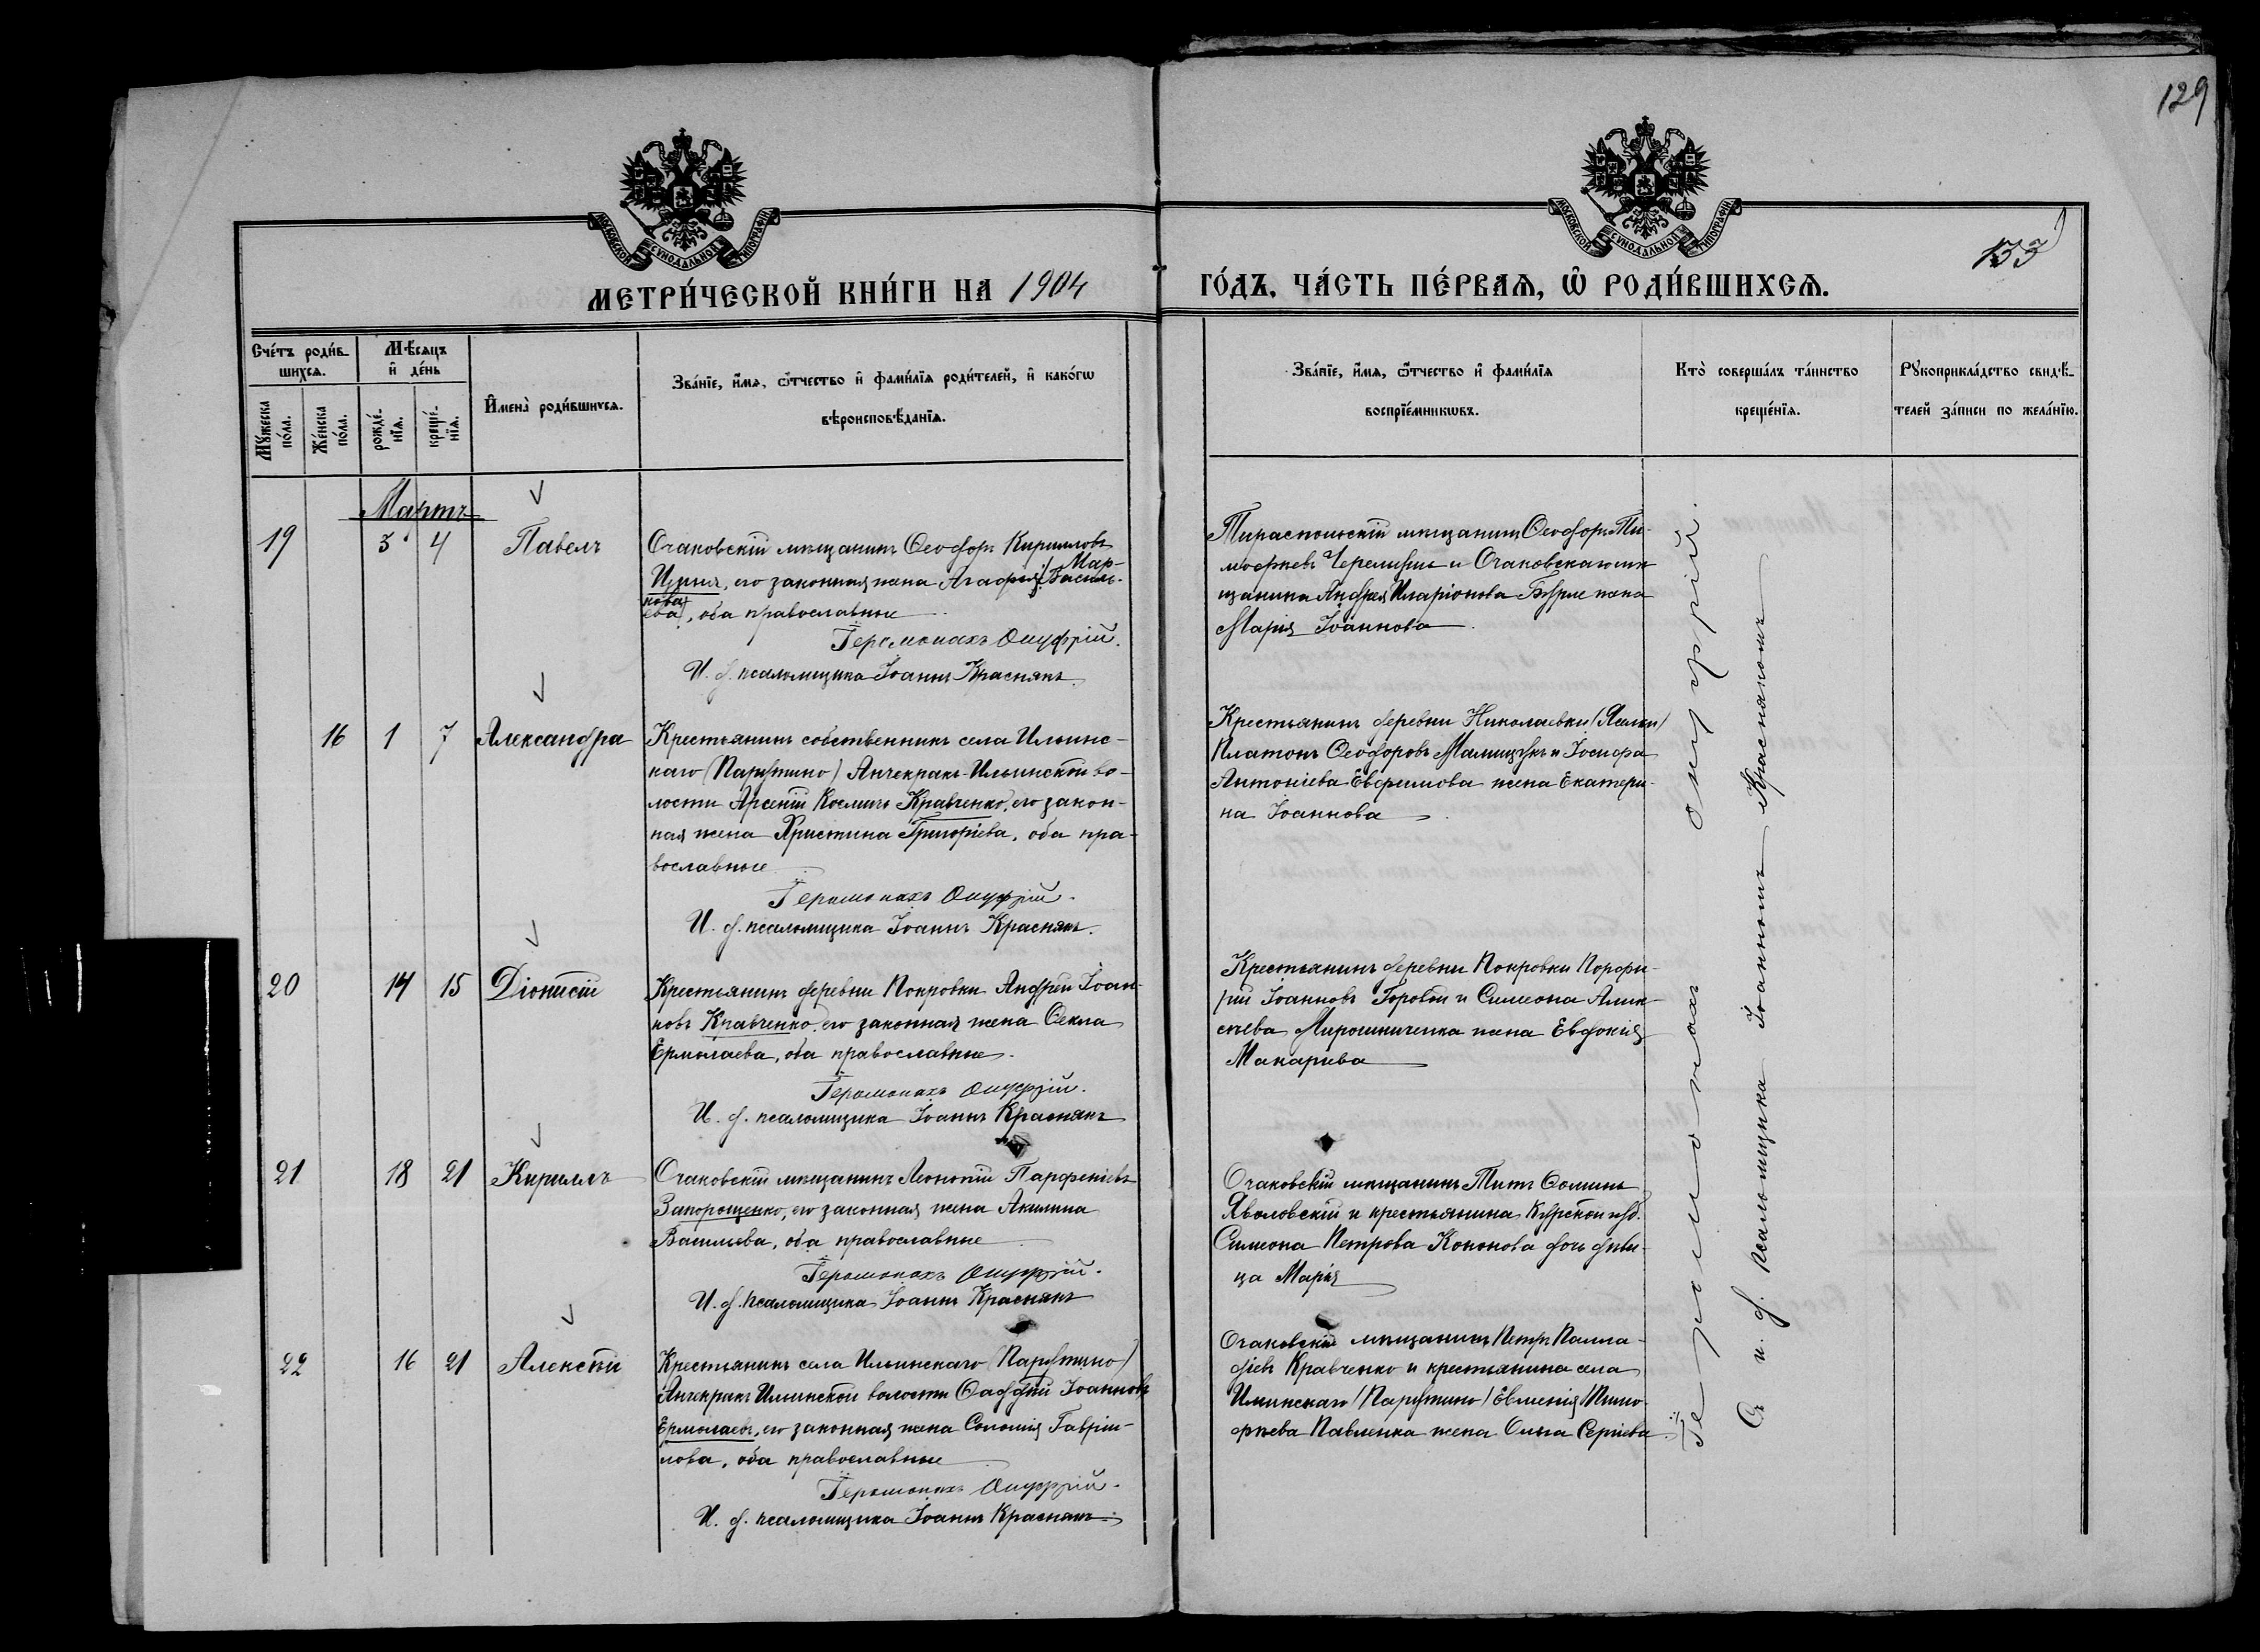 129
133
МОСКОВСКОЙ СУНОДАЛЬНОЙ ТИПОГРАФІИ
МОСКОВСКОЙ СУНОДАЛЬНОЙ ТИПОГРАФІИ
МЕТРИ́ЧЕСКОЙ КНИ́ГИ НА 1904
ГО́ДЪ, ЧА́СТЬ ПЕ́РВАѦ, Ѽ РОДИ́ВШИХСѦ.
Сче́тъ роди́в-
шихсѧ.
Мѣ́сѧцъ
и҆ де́нь
Мꙋ́жеска
по́ла.
Же́нска
по́ла.
рожде́-
нїѧ.
креще́-
нїѧ.
И҆мена̀ роди́вшихсѧ.
Зва́нїе, и҆́мѧ, ѻ҆́тчество и҆ фами́лїѧ роди́телей, и҆ како́гѡ
вѣроисповѣ́данїѧ.
Зва́нїе, и҆́мѧ, ѻ҆́тчество и҆ фами́лїѧ
воспрїе́мникѡвъ.
Кто̀ соверша́лъ та́инство
креще́нїѧ.
Рꙋкоприкла́дство свидѣ́-
телей за́писи по жела́нїю.
Мартъ
19 3 4 Павелъ
Очаковскій мѣщанинъ Ѳеодоръ Кирилловъ
его законная жена Агафія Василь-
Мар-
кова
ева, оба православные
Іеромонахъ Онуфрій.
И. д. псаломщика Іоаннъ Краснякъ
Тираспольскій мѣщанинъ Ѳеодоръ Ти-
моѳеевъ и Очаковскаго мѣ-
щанина Андрея Иларіонова жена
Марія Іоаннова
16 1 7 Александра
Крестьянинъ собственникъ села Ильинс-
каго (Парутино) Анчекракъ-Ильинской во-
лости Арсеній Космичъ Кравченко, его закон-
ная жена Христина Григорьева, оба пра-
вославные
Іеромонахъ Онуфрій.
И. д. псаломщика Іоаннъ Краснякъ.
Крестьянинъ деревни Николаевки
Платонъ Ѳеодоровъ и Іосифа
Антоніева Евфимова жена Екатери-
на Іоаннова
20 14 15 Діонисій
Крестьянинъ деревни Покровки Андрей Іоан-
новъ Кравченко, его законная жена Ѳекла
Ермолаева, оба православные.
Іеромонахъ Онуфрій.
И. д. псаломщика Іоаннъ Краснякъ
Крестьянинъ деревни Покровки Порфи-
рій Іоанновъ Горовой и Симеона Алек-
сѣева Мирошниченка жена Евдокія
Макарьева
21 18 21 Кириллъ
Очаковскій мѣщанинъ Леонтій Парѳеніевъ
Запорощенко, его законная жена Акилина
Васильева, оба православные
Іеромонахъ Онуфрій.
И. д. псаломщика Іоаннъ Краснякъ
Очаковскій мѣщанинъ Титъ Ѳоминъ
Яволовскій и крестьянина Курской губ.
Симеона Петрова Кононова дочь дѣви-
ца Марія
22 16 21 Алексѣй
Крестьянинъ села Ильинскаго (Парутино)
Анчекракъ Ильинской волости Ѳаддей Іоанновъ
Ермолаевъ, его законная жена Соломія Гавріи-
лова, оба православные
Іеромонахъ Онуфрій.
И. д. псаломщика Іоаннъ Краснякъ
Очаковскій мѣщанинъ Петръ Палла-
діевъ Кравченко и крестьянина села
Ильинскаго (Парутино) Евменія Тимо-
ѳеева Павленка жена Ольга Сергіева
Іеромонахъ Онуфрій.
Съ и. д. псаломщика Іоанномъ Краснякомъ